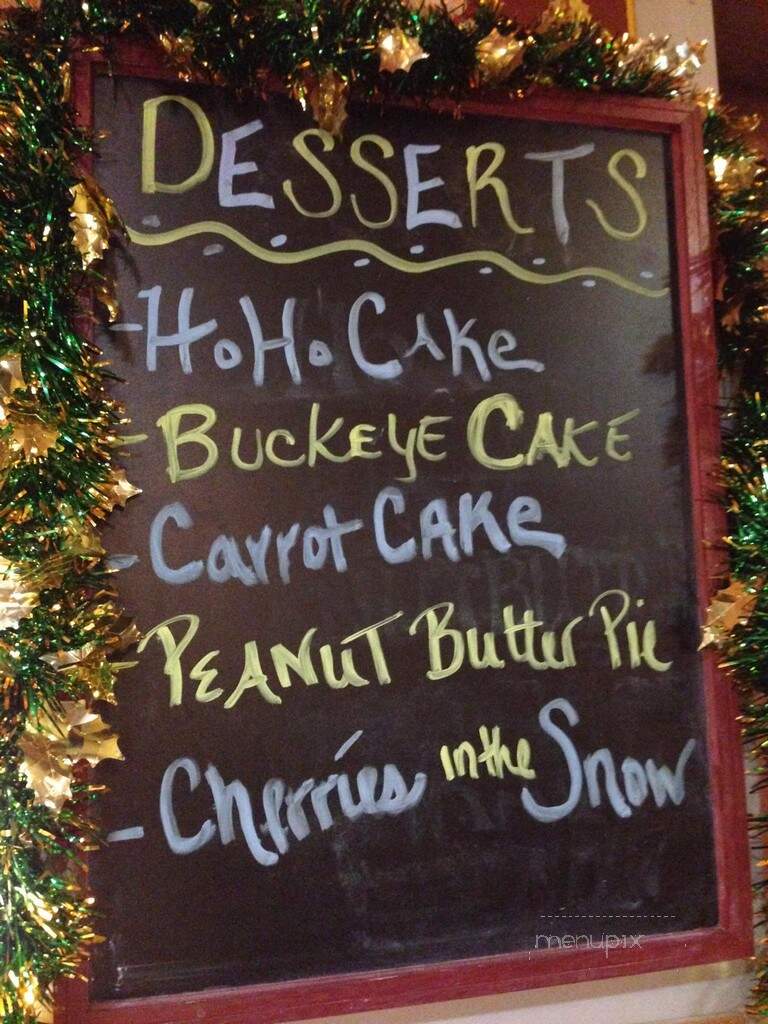 DESSERTS
- HoHo CAKe
- BUCKEYE CAKE
- Carrot CAKe
- PEANUT Butter Pie
- Cherries in the Snow
menupix